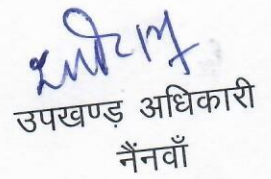 उपखण्ड़ अधिकारी
नैंनवाँ